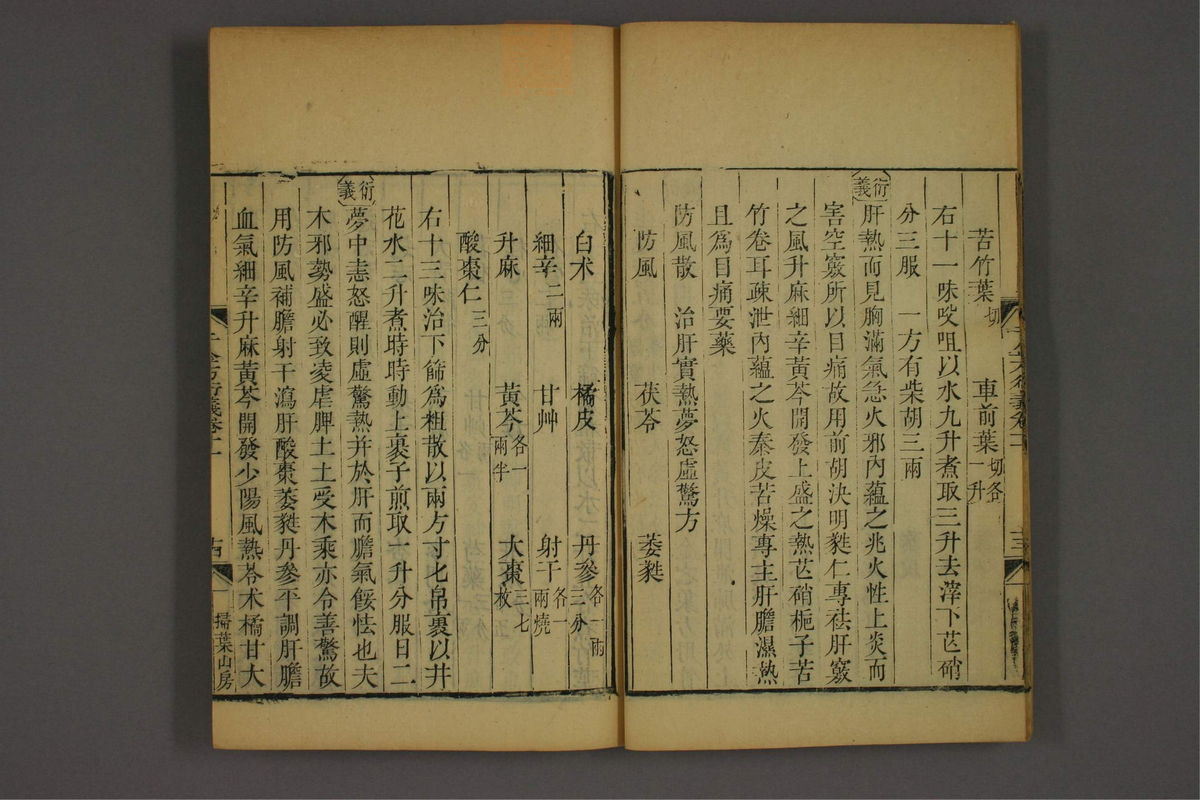 苦竹葉切 車前葉切各一升
右十一味㕮咀以水九升煮取三升去滓下芒硝
分三服 一方有柴胡三兩
衍義
肝熱而見胸滿氣急火邪內蘊之兆火性上炎而
害空竅所以目痛故用前胡決明蕤仁專祛肝竅
之風升麻細辛黃芩開發上盛之熱芒硝梔子苦
竹卷耳疎泄內蘊之火秦皮苦燥專主肝膽濕熱
且為目痛要藥
防風散 治肝實熱夢怒虛驚方
防風 茯苓 萎蕤
白朮 橘皮 丹參各一兩三分
細辛二兩 甘艸 射干各一兩燒
升麻 黃芩各一兩半 大棗三七枚
酸棗仁三分
右十三味治下篩為粗散以兩方寸匕帛裹以井
花水二升煮時時動上裹子煎取一升分服日二
衍義
夢中恚怒醒則虛驚熱并於肝而膽氣餒怯也夫
木邪勢盛必致凌虐脾土土受木乘亦令善驚故
用防風補膽射干瀉肝酸棗萎蕤丹參平調肝膽
血氣細辛升麻黃芩開發少陽風熱苓朮橘甘大
千金方衍義卷十一
十四
掃葉山房